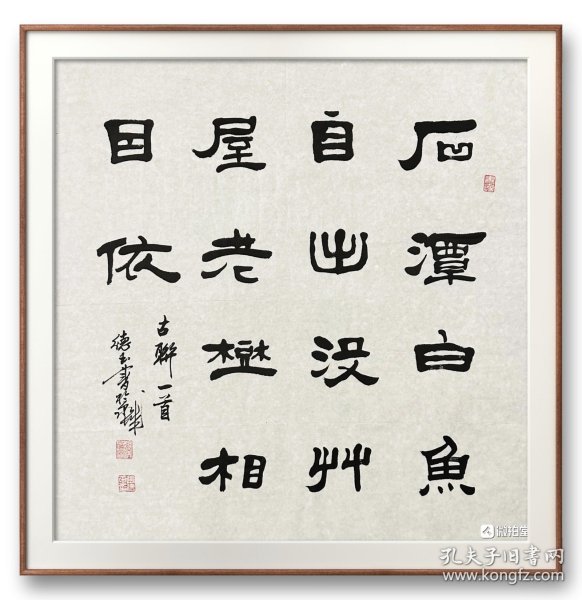 石潭白魚
自出没艸
屋老樹相
因依
古聯一首
微拍堂
孔夫子旧书网
www.kongfz.com